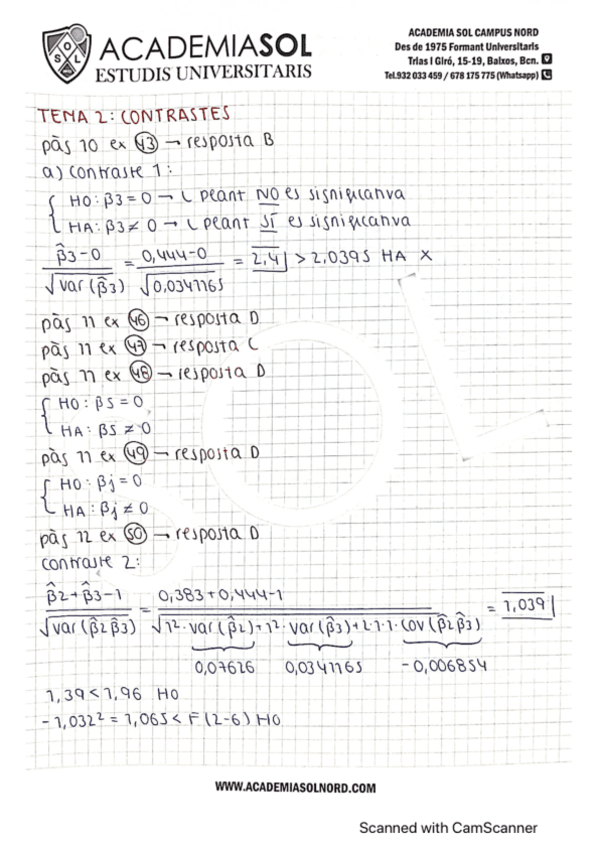 ACADEMIASOL
ESTUDIS UNIVERSITARIS
SOL
ACADEMIA SOL CAMPUS NORD
Des de 1975 Formant Universitaris
Trias I Giró, 15-19, Baixos, Bcn.
Tel.932 033 459 / 678 175 775 (Whatsapp)
TEMA 2: CONTRASTES
pàg 10 ex 43 → resposta B
a) contraste 1:
H0: β3 = 0 → L peant NO es significativa
HA: β3 ≠ 0 → L peant SÍ es significativa
β̂3-0 / √var(β̂3) = 0,444-0 / √0,0341165 = 2,4 > 2,0395 HA X
pàg 11 ex 46 → resposta D
pàg 11 ex 47 → resposta C
pàg 11 ex 48 → resposta D
H0: β5 = 0
HA: β5 ≠ 0
pàg 11 ex 49 → resposta D
H0: βj = 0
HA: βj ≠ 0
pàg 12 ex 50 → resposta D
contraste 2:
β̂2+β̂3-1 / √var(β̂2β̂3) = 0,383+0,444-1 / √1²·var(β̂2)+1²·var(β̂3)+2·1·1·cov(β̂2β̂3) = 1,039
0,07626 0,0341165 -0,006854
1,39 < 1,96 H0
-1,032² = 1,065 < F(2-6) H0
WWW.ACADEMIASOLNORD.COM
Scanned with CamScanner